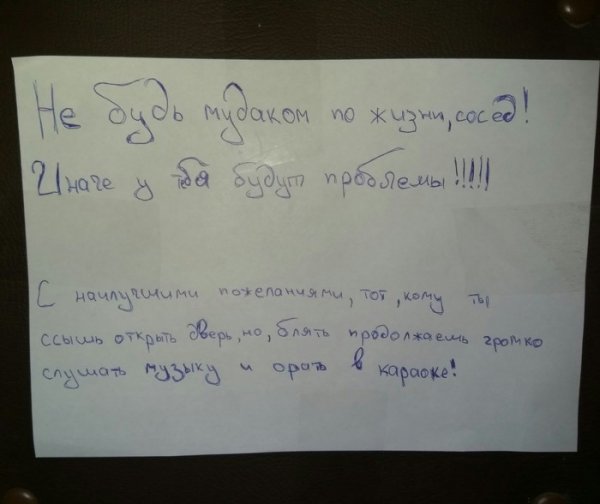 Не будь мудаком по жизни, сосед!
Иначе у тбя будут проблемы!!!!!
С наилучшими пожеланиями, тот, кому ты
ссышь открыть дверь, но, блять продолжаешь громко
слушать музыку и орать в караоке!